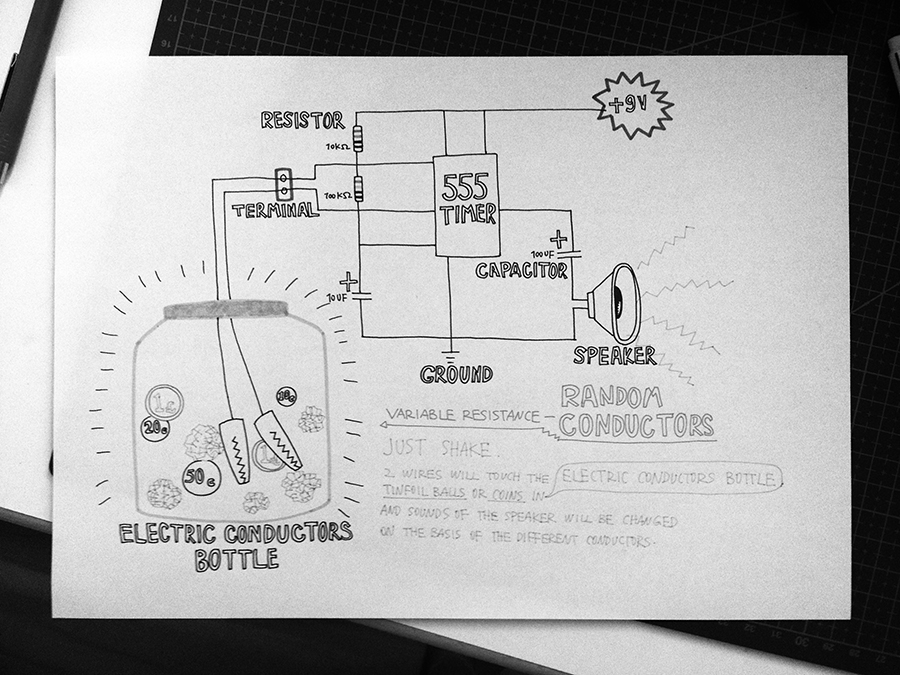 RESISTOR
+9V
10KΩ
555
TIMER
100KΩ
TERMINAL
+
100UF
CAPACITOR
+
10UF
SPEAKER
GROUND
RANDOM
CONDUCTORS
VARIABLE RESISTANCE
JUST SHAKE.
2 WIRES WILL TOUCH THE ELECTRIC CONDUCTORS BOTTLE
TINFOIL BALLS OR COINS IN
AND SOUNDS OF THE SPEAKER WILL BE CHANGED
ON THE BASIS OF THE DIFFERENT CONDUCTORS.
1c
20c
50c
ELECTRIC CONDUCTORS
BOTTLE